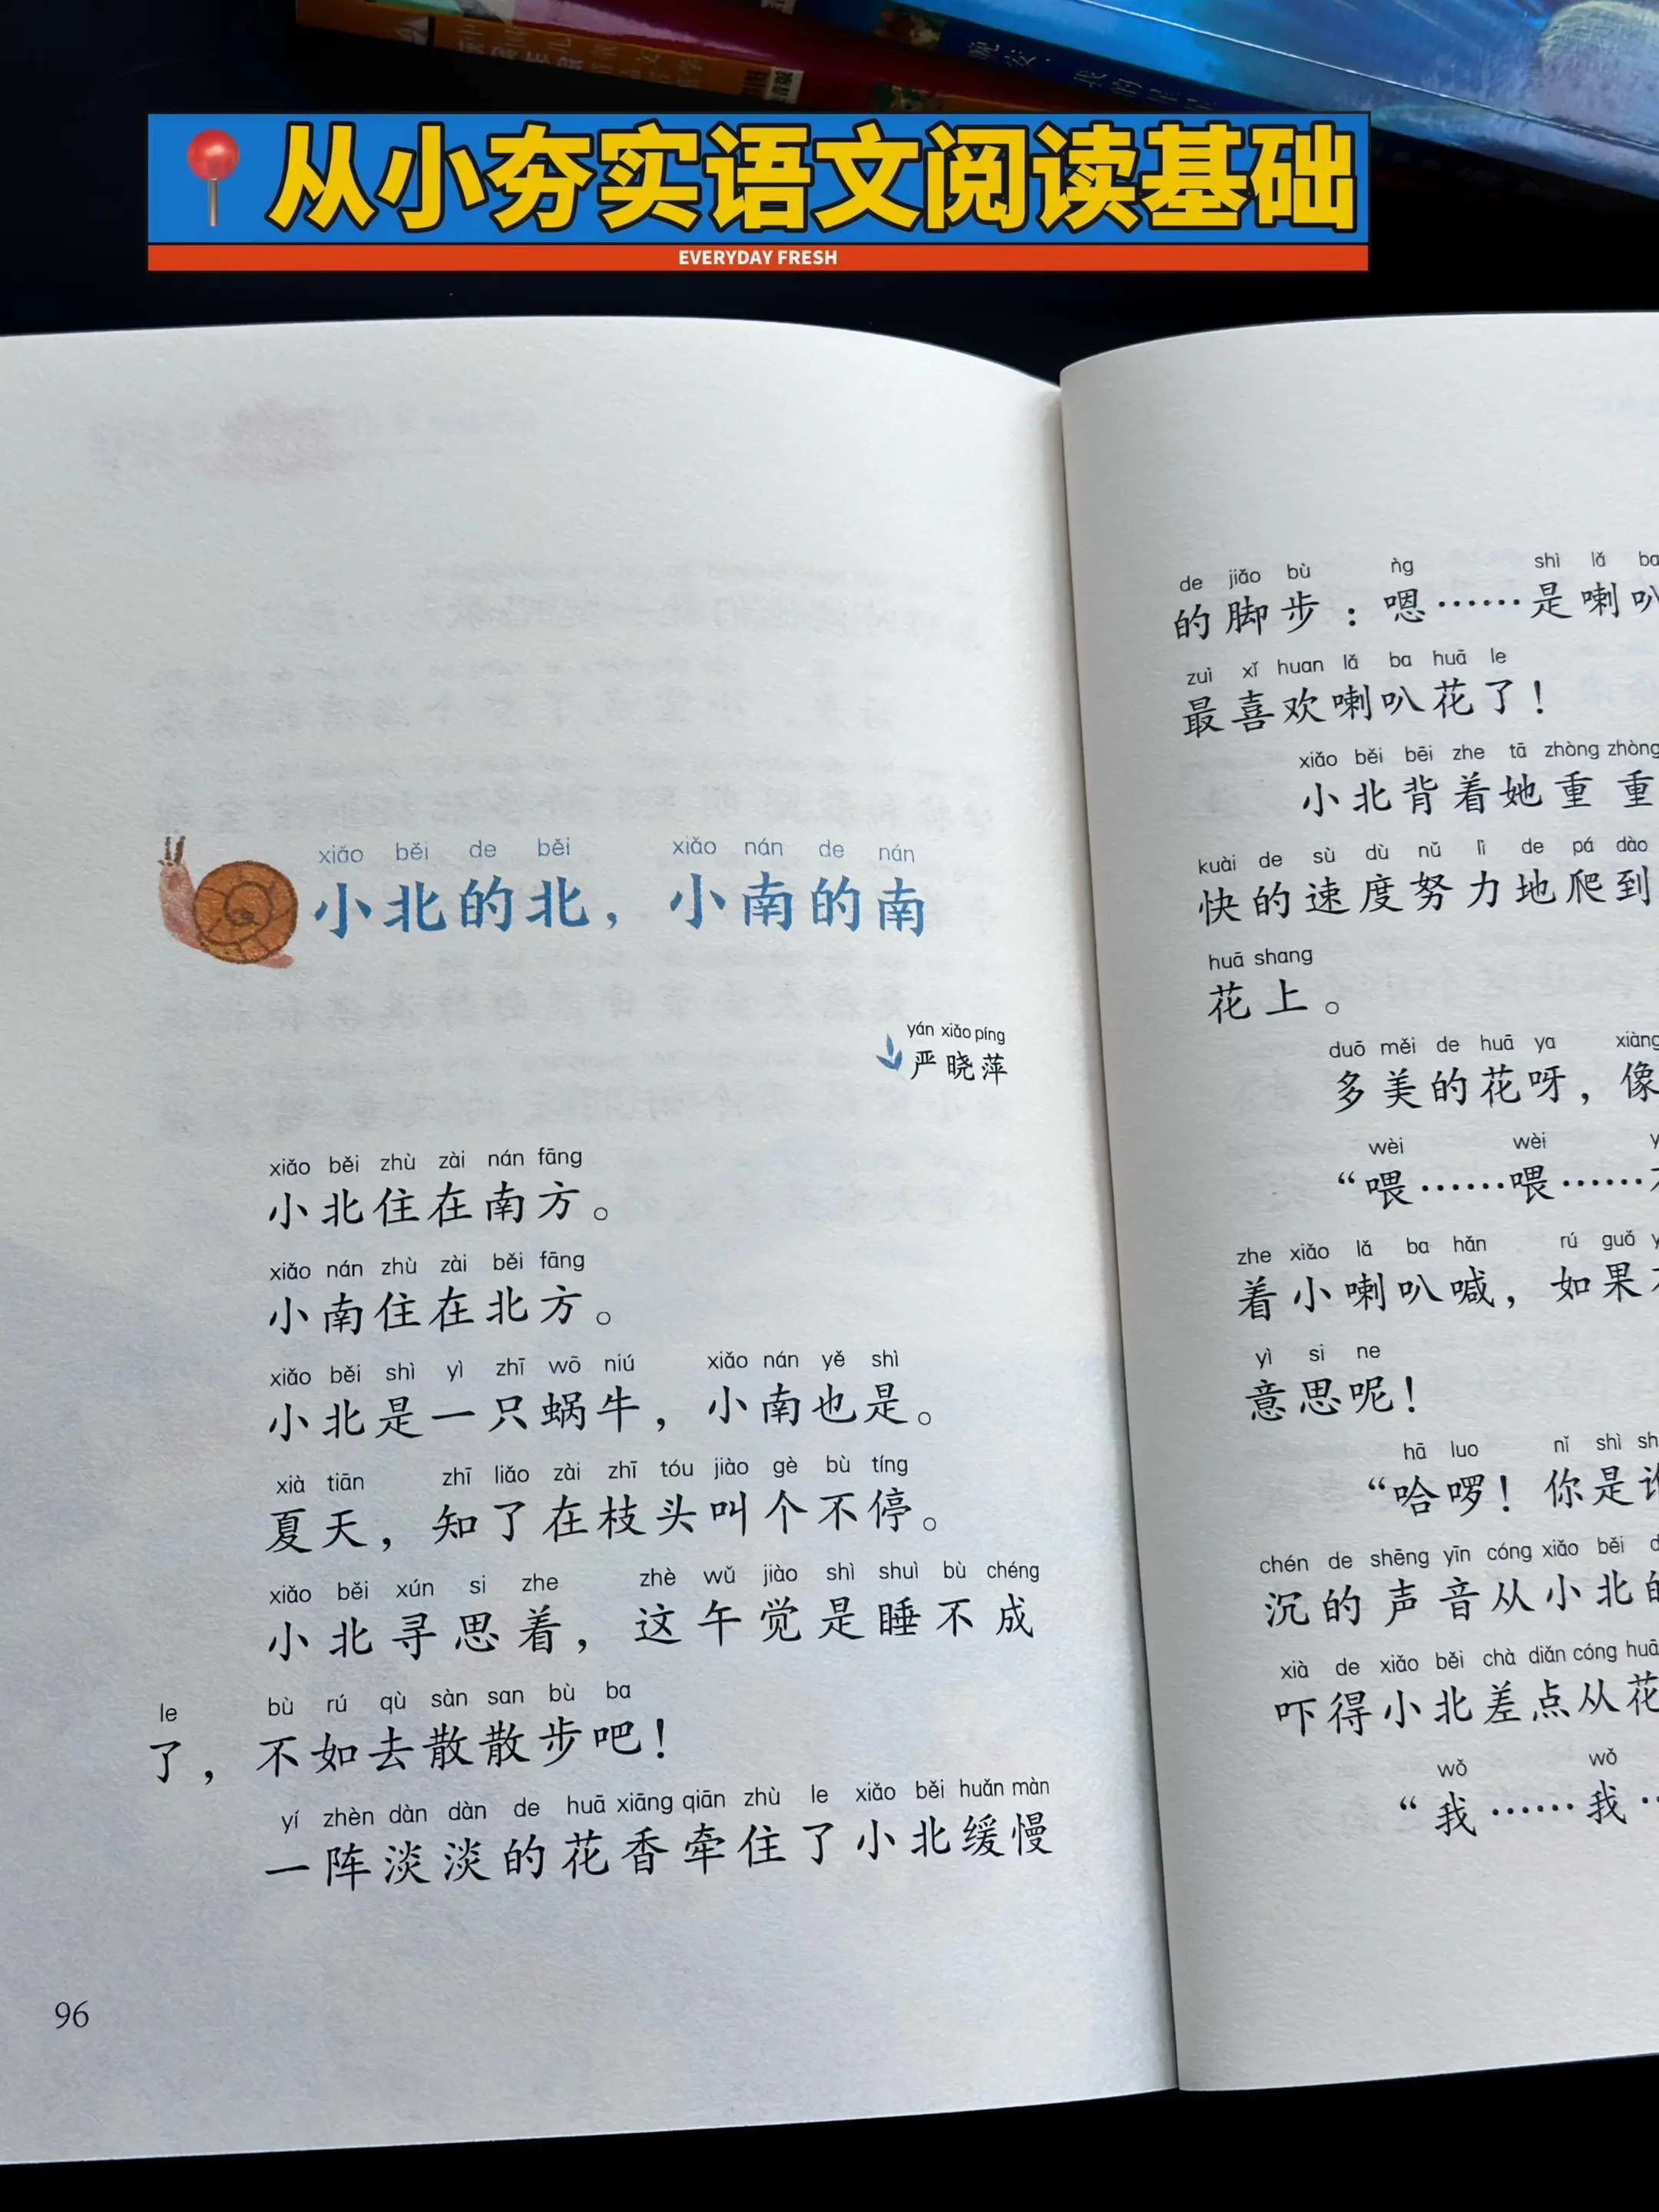 从小夯实语文阅读基础
EVERYDAY FRESH
xiǎo běi de běi xiǎo nán de nán
小北的北，小南的南
yán xiǎo píng
严晓萍
xiǎo běi zhù zài nán fāng
小北住在南方。
xiǎo nán zhù zài běi fāng
小南住在北方。
xiǎo běi shì yì zhī wō niú xiǎo nán yě shì
小北是一只蜗牛，小南也是。
xià tiān zhī liǎo zài zhī tóu jiào gè bù tíng
夏天，知了在枝头叫个不停。
xiǎo běi xún si zhe zhè wǔ jiào shì shuì bù chéng
小北寻思着，这午觉是睡不成
le bù rú qù sàn san bù ba
了，不如去散散步吧！
yí zhèn dàn dàn de huā xiāng qiān zhù le xiǎo běi huǎn màn
一阵淡淡的花香牵住了小北缓慢
96
de jiǎo bù ǹg shì lǎ ba
的脚步：嗯……是喇叭
zuì xǐ huan lǎ ba huā le
最喜欢喇叭花了！
xiǎo běi bēi zhe tā zhòng zhòng
小北背着她重重
kuài de sù dù nǔ lì de pá dào
快的速度努力地爬到
huā shang
花上。
duō měi de huā ya xiàng
多美的花呀，像
wèi wèi
“喂……喂……
zhe xiǎo lǎ ba hǎn rú guǒ
着小喇叭喊，如果
yì si ne
意思呢！
hā luo nǐ shì
“哈啰！你是
chén de shēng yīn cóng xiǎo běi
沉的声音从小北的
xià de xiǎo běi chà diǎn cóng huā
吓得小北差点从花
wǒ wǒ
“我……我…